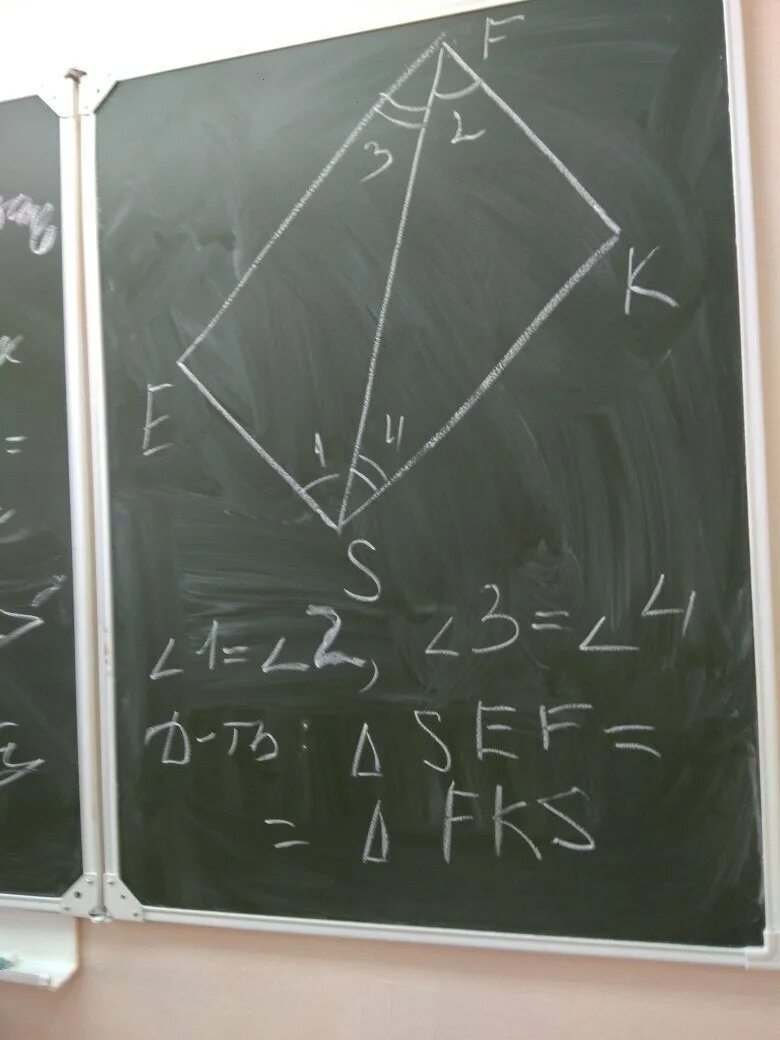 F
3 2
K
E
1 4
S
∠1=∠2, ∠3=∠4
Д-ть: Δ SEF =
= Δ FKS